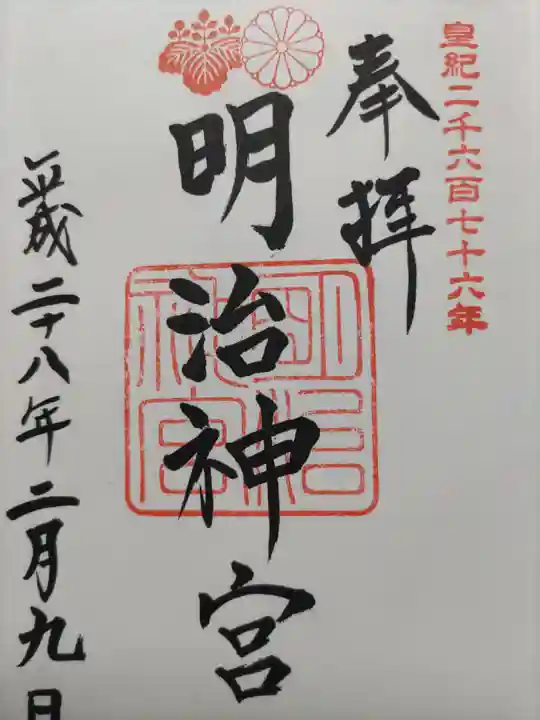 皇紀二千六百七十六年
奉拝
明治神宮
明治神宮
平成二十八年二月九日